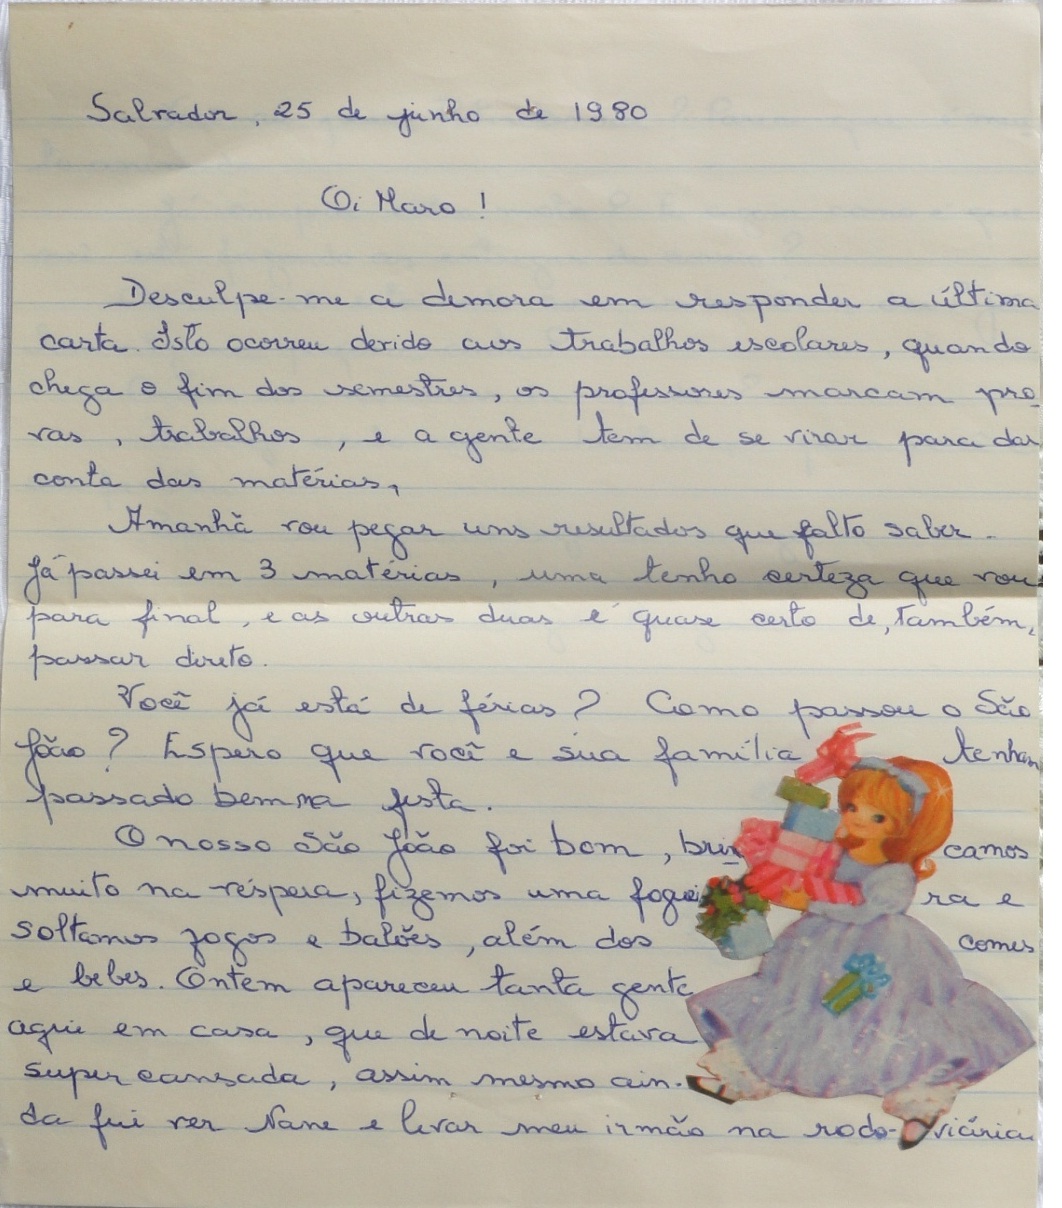 Salvador, 25 de junho de 1980
Oi Maro!
Desculpe-me a demora em responder a última
carta. Isto ocorreu devido aos trabalhos escolares, quando
chega o fim dos semestres, os professores marcam pro-
vas, trabalhos, e a gente tem de se virar para dar
conta das matérias,
Amanhã vou pegar uns resultados que falto saber.
Já passei em 3 matérias, uma tenho certeza que vou
para final, e as outras duas é quase certo de, também,
passar direto.
Você já está de férias? Como passou o São
João? Espero que você e sua família tenham
passado bem na festa.
O nosso São João foi bom, brin camos
muito na véspera, fizemos uma foguei ra e
soltamos fogos e balões, além dos comes
e bebes. Ontem apareceu tanta gente
aqui em casa, que de noite estava
super cansada, assim mesmo ain-
da fui ver Nane e levar meu irmão na rodo-viária